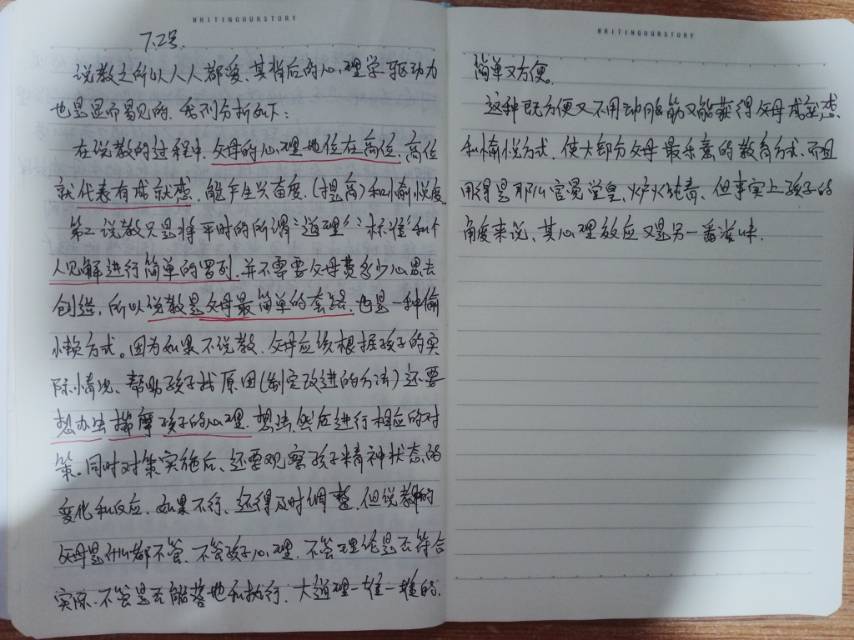 WRITINGOURSTORY
7.2号.
说教之所以人人都爱、其背后的心理学驱动力
也是显而易见的.我列分析如下:
在说教的过程中.父母的心理地位在高位.高位
就代表有成就感.能产生兴奋度.(提高)和愉悦度
第二说教只是将平时的所谓“道理”“标准”和个
人见解进行简单的罗列.并不需要父母费多少心思去
创造,所以说教是父母最简单的套路.也是一种偷
懒方式。因为如果不说教.父母应该根据孩子的实
际情况、帮助孩子找原因(制定改进的方法)还要
想办法揣摩孩子的心理.想法.然后进行相应的对
策。同时对策实施后、还要观察孩子精神状态的
变化和反应.如果不行、还得及时调整.但说教的
父母是什么都不管.不管孩子心理.不管理论是否符合
实际.不管是否能落地和执行.大道理一堆一堆的.
WRITINGOURSTORY
简单又方便。
这种既方便又不用动脑筋又能获得父母成就感
和愉悦方式.使大部分父母最乐意的教育方式.而且
用得是那么冠冕堂皇、炉火纯青、但事实上孩子的
角度来说、其心理效应又是另一番滋味.